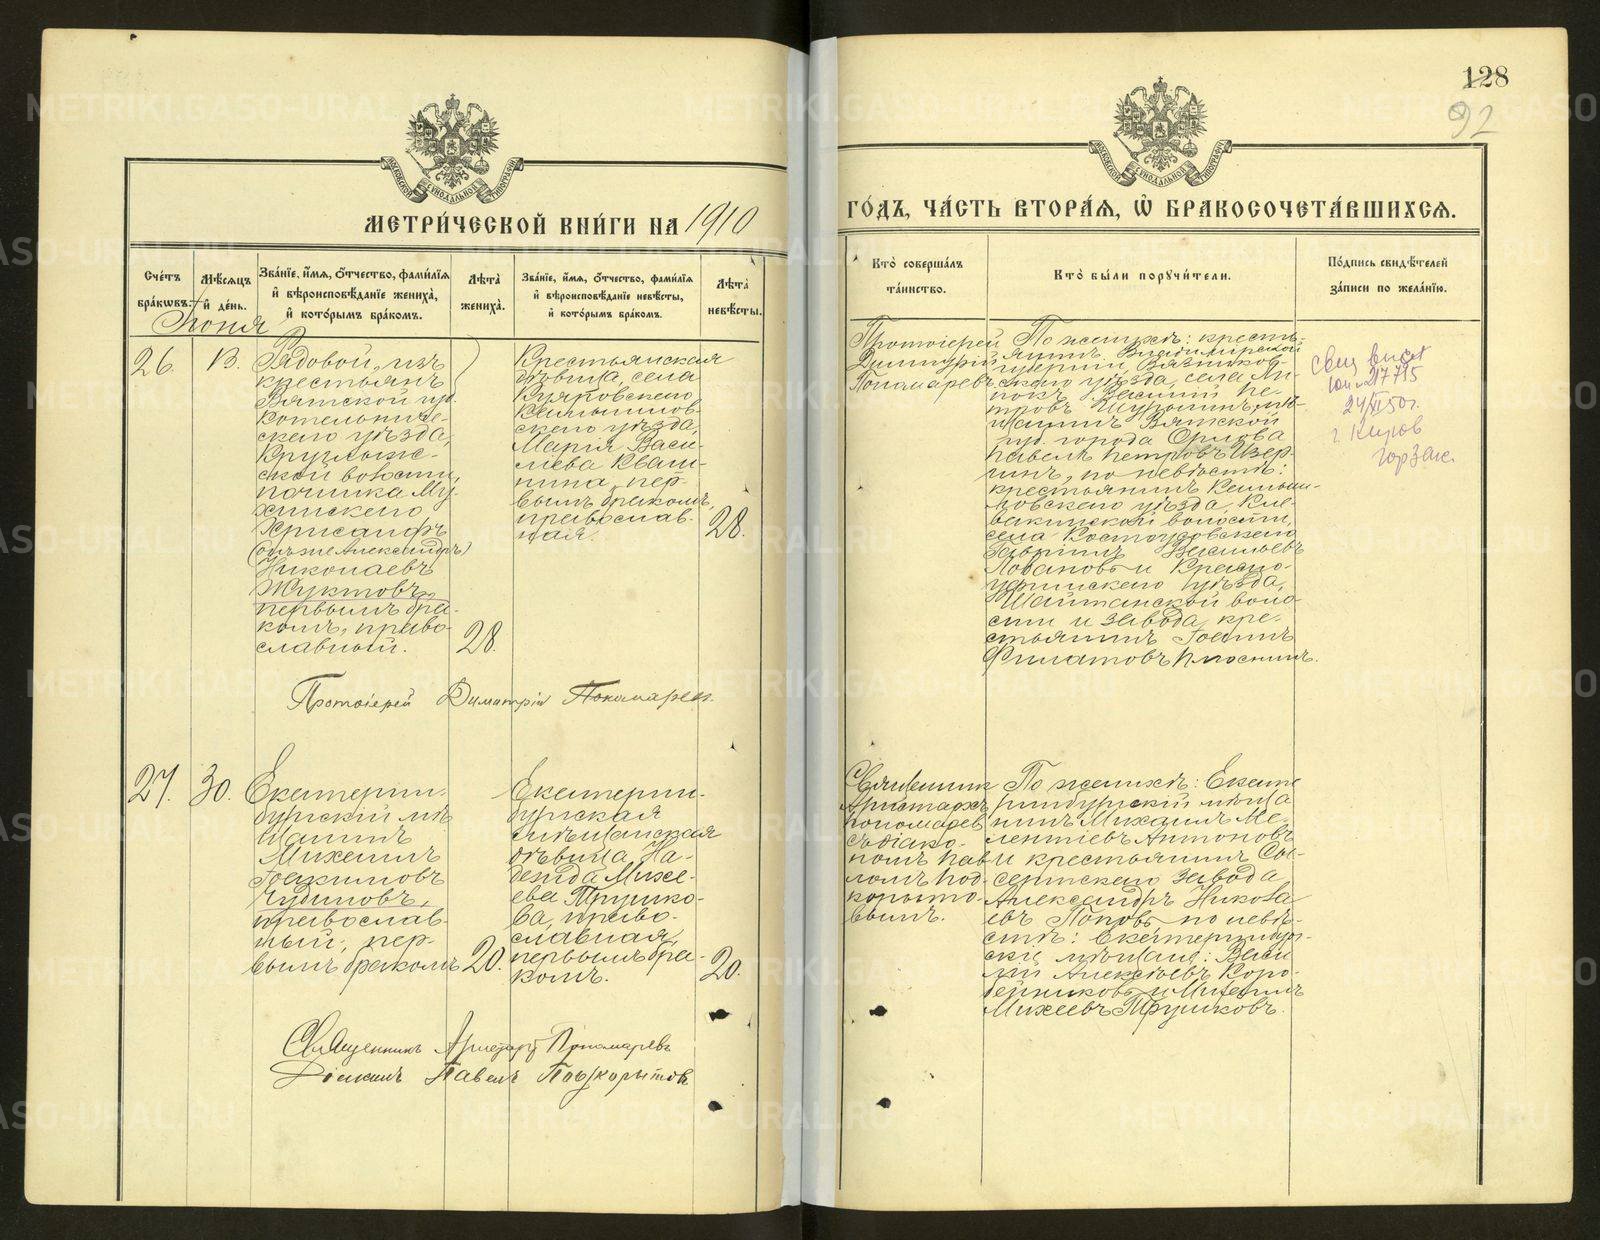 128
92
МЕТРИ́ЧЕСКОЙ КНИ́ГИ НА 1910
ГО́ДЪ, ЧА́СТЬ ВТОРА́Я, Ѡ҆ БРАКОСОЧЕТА́ВШИХСЯ.
Сче́тъ бра́ковъ.
Мѣ́сяцъ и҆ де́нь.
Зва́нїе, и҆́мя, о҆́тчество, фами́лїя и҆ вѣроисповѣ́данїе жениха̀, и҆ кото́рымъ бра́комъ.
Лѣ́та жениха̀.
Зва́нїе, и҆́мя, о҆́тчество, фами́лїя и҆ вѣроисповѣ́данїе невѣ́сты, и҆ кото́рымъ бра́комъ.
Лѣ́та невѣ́сты.
Кто̀ соверша́лъ та́инство.
Кто̀ бы́ли поручи́тели.
По́дпись свидѣ́телей за́писи по жела́нїю.
26.
Рядовой, изъ
крестьянъ
Вятской гу.
Котельниче-
скаго уѣзда,
волости,
починка Му-
хинскаго,
Хрисанфъ
(онъ же Александръ)
Николаевъ
Жуктовъ,
первымъ бра-
комъ, право-
славный.
28.
Крестьянская
дѣвица села
Кочковскаго,
Камышлов-
скаго уѣзда,
Марія Васи-
льева Кваш-
нина, пер-
вымъ бракомъ,
православ-
ная.
28.
Протоіерей
Димитрій
Пономаревъ.
По женихѣ: кресть-
янинъ Владимірской
губерніи, Вязников-
скаго уѣзда, села
Василій Пе-
тровъ
щанинъ Вятской
гу. города Орлова
Павелъ Петровъ
по невѣстѣ:
крестьянинъ Камыш-
ловскаго уѣзда,
волости,
села
Васильевъ
Лобановъ и Красно-
уфимскаго уѣзда,
Шайтанской воло-
сти и завода, кре-
стьянинъ Іоаннъ
Филатовъ
24/XI 50 г.
г. Киров
Горзаг.
Протоіерей Димитрій Пономаревъ.
27.
30.
Екатерин-
бургскій мѣ-
щанинъ
Михаилъ
Іоакимовъ
Чудиновъ,
православ-
ный, пер-
вымъ бракомъ
20.
Екатерин-
бургская
мѣщанская
дѣвица На-
дежда Михе-
ева Трушко-
ва, право-
славная,
первымъ бра-
комъ.
20.
Священникъ
Аристархъ
Пономаревъ
съ діако-
номъ Пав-
ломъ Под-
корыто-
вымъ.
По женихѣ: Екате-
ринбургскій мѣща-
нинъ Михаилъ Ме-
лентіевъ Антоновъ
и крестьянинъ Сы-
сертскаго завода
Александръ Никола-
евъ Поповъ по невѣ-
стѣ: Екатеринбург-
скіе мѣщане: Васи-
лій Алексѣевъ Коро-
бейниковъ и Михаилъ
Михеевъ Трушковъ.
Священникъ Аристархъ Пономаревъ
Діаконъ Павелъ Подкорытовъ